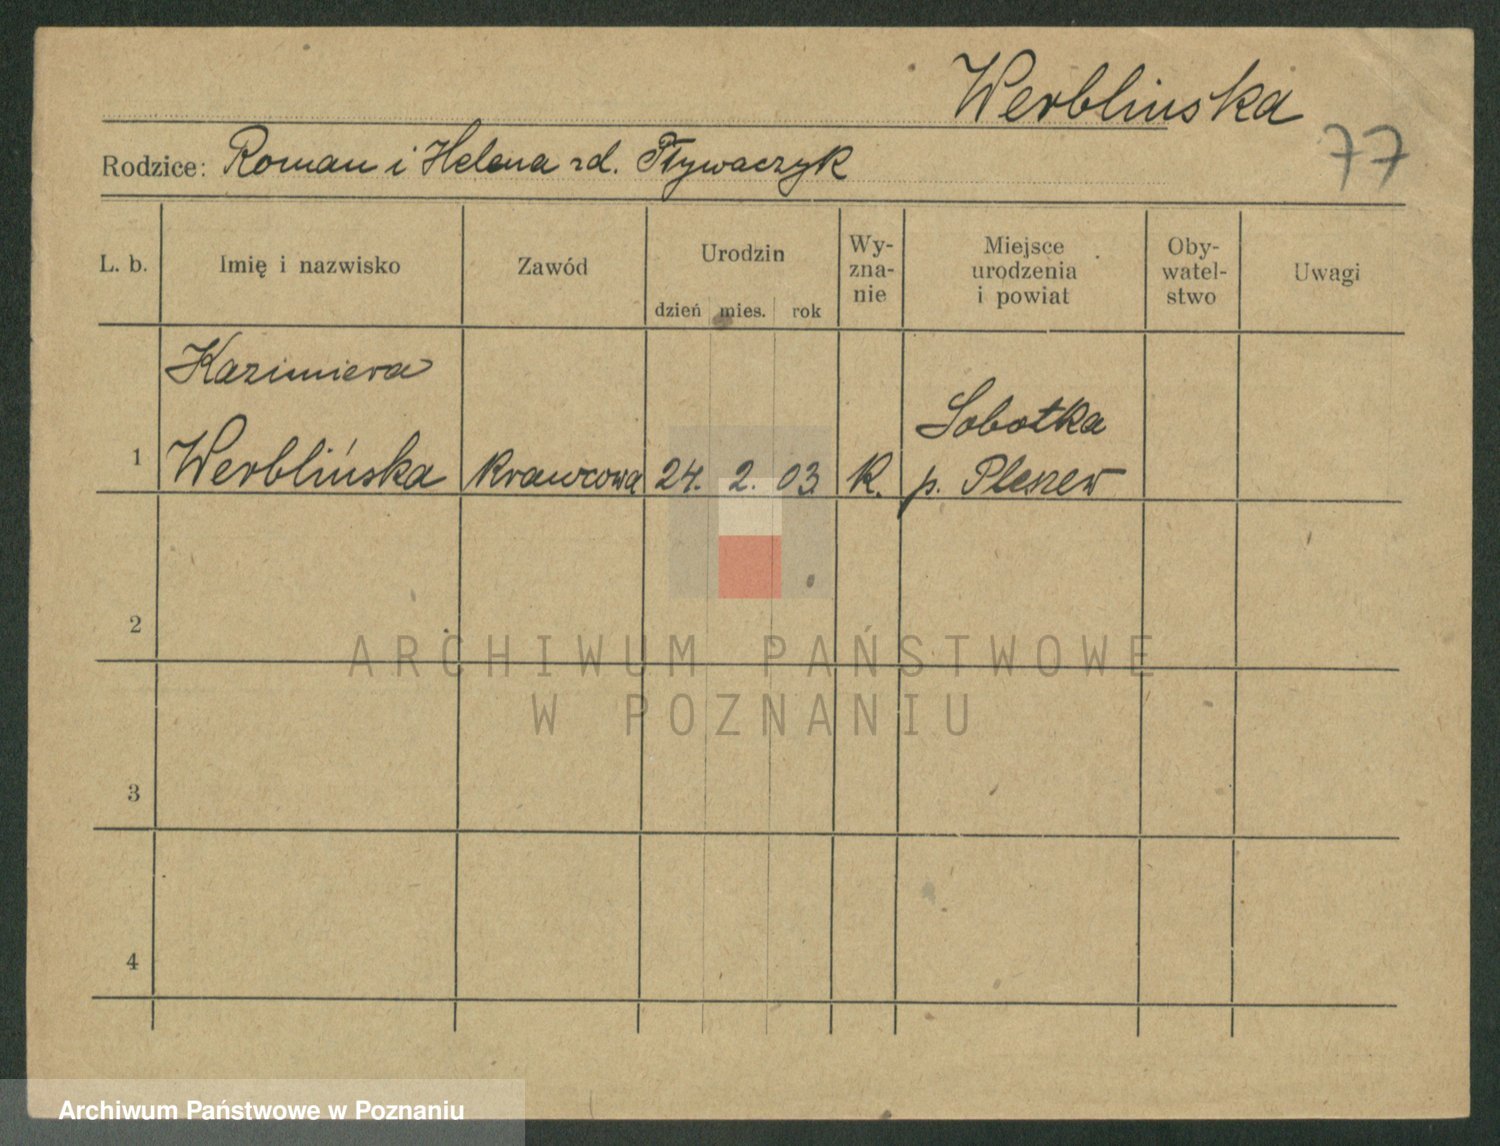 Werblinska
77
Rodzice: Roman i Helena zd. Pływaczyk
L. b.
Imię i nazwisko
Zawód
Urodzin
dzień mies. rok
Wy-
zna-
nie
Miejsce
urodzenia
i powiat
Oby-
watel-
stwo
Uwagi
Kazimiera
1 Werblińska krawcowa 24. 2. 03 k.
Sobotka
p. Pleszew
2
3
4
ARCHIWUM PAŃSTWOWE
W POZNANIU
Archiwum Państwowe w Poznaniu